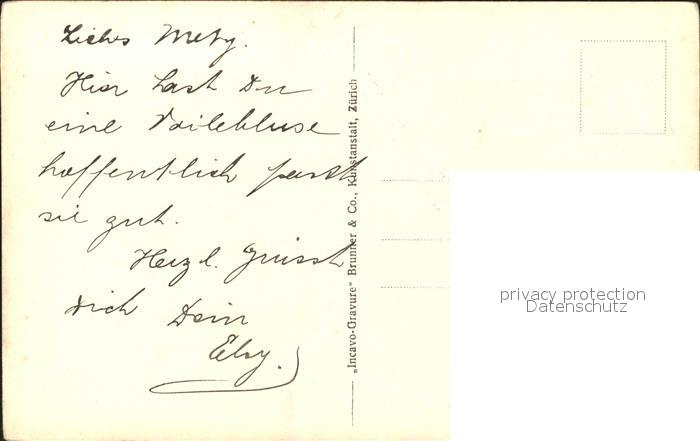 Liebes Metzy.
Hier hast Du
eine Voilebluse
hoffentlich passt
sie gut.
Herzl. grüsst
Dich Dein
Elsy.
„Incavo-Gravure“ Brunner & Co., Kunstanstalt, Zürich
privacy protection
Datenschutz